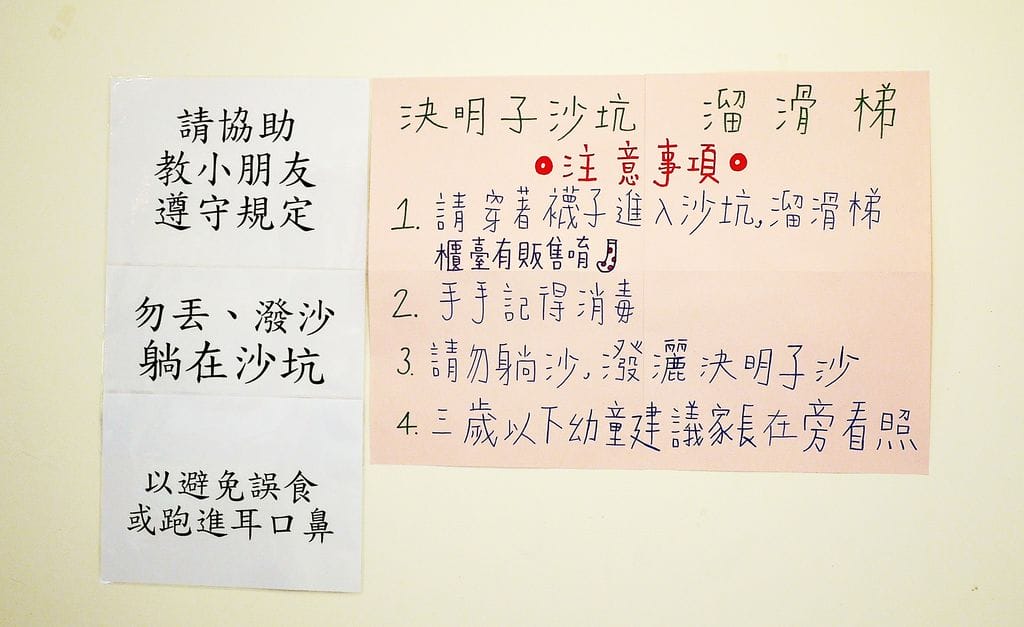 請協助
教小朋友
遵守規定
勿丟、潑沙
躺在沙坑
以避免誤食
或跑進耳口鼻
決明子沙坑 溜滑梯
注意事項
1. 請穿著襪子進入沙坑,溜滑梯
櫃臺有販售唷
2. 手手記得消毒
3. 請勿躺沙,潑灑決明子沙
4. 三歲以下幼童建議家長在旁看照